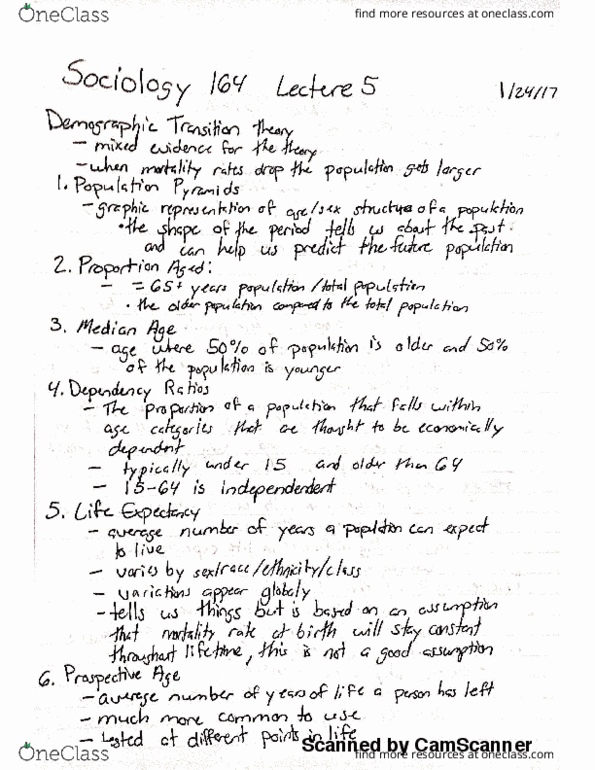 OneClass
find more resources at oneclass.com
Sociology 164 Lecture 5
1/24/17
Demographic Transition theory
- mixed evidence for the theory
- when mortality rates drop the population gets larger
1. Population Pyramids
- graphic representation of age/sex structure of a population
• the shape of the period tells us about the past
and can help us predict the future population
2. Proportion Aged:
- = 65+ years population/total population
• the older population compared to the total population
3. Median Age
- age where 50% of population is older and 50%
of the population is younger
4. Dependency Ratios
- The proportion of a population that falls within
age categories that are thought to be economically
dependent
- typically under 15 and older than 64
- 15-64 is independendent
5. Life Expectancy
- average number of years a population can expect
to live
- varies by sex/race/ethnicity/class
- variations appear globally
- tells us things but is based on an assumption
that mortality rate at birth will stay constant
throughout lifetime, this is not a good assumption
6. Prospective Age
- average number of years of life a person has left
- much more common to use
- at different points in life
Scanned by CamScanner
OneClass
find more resources at oneclass.com